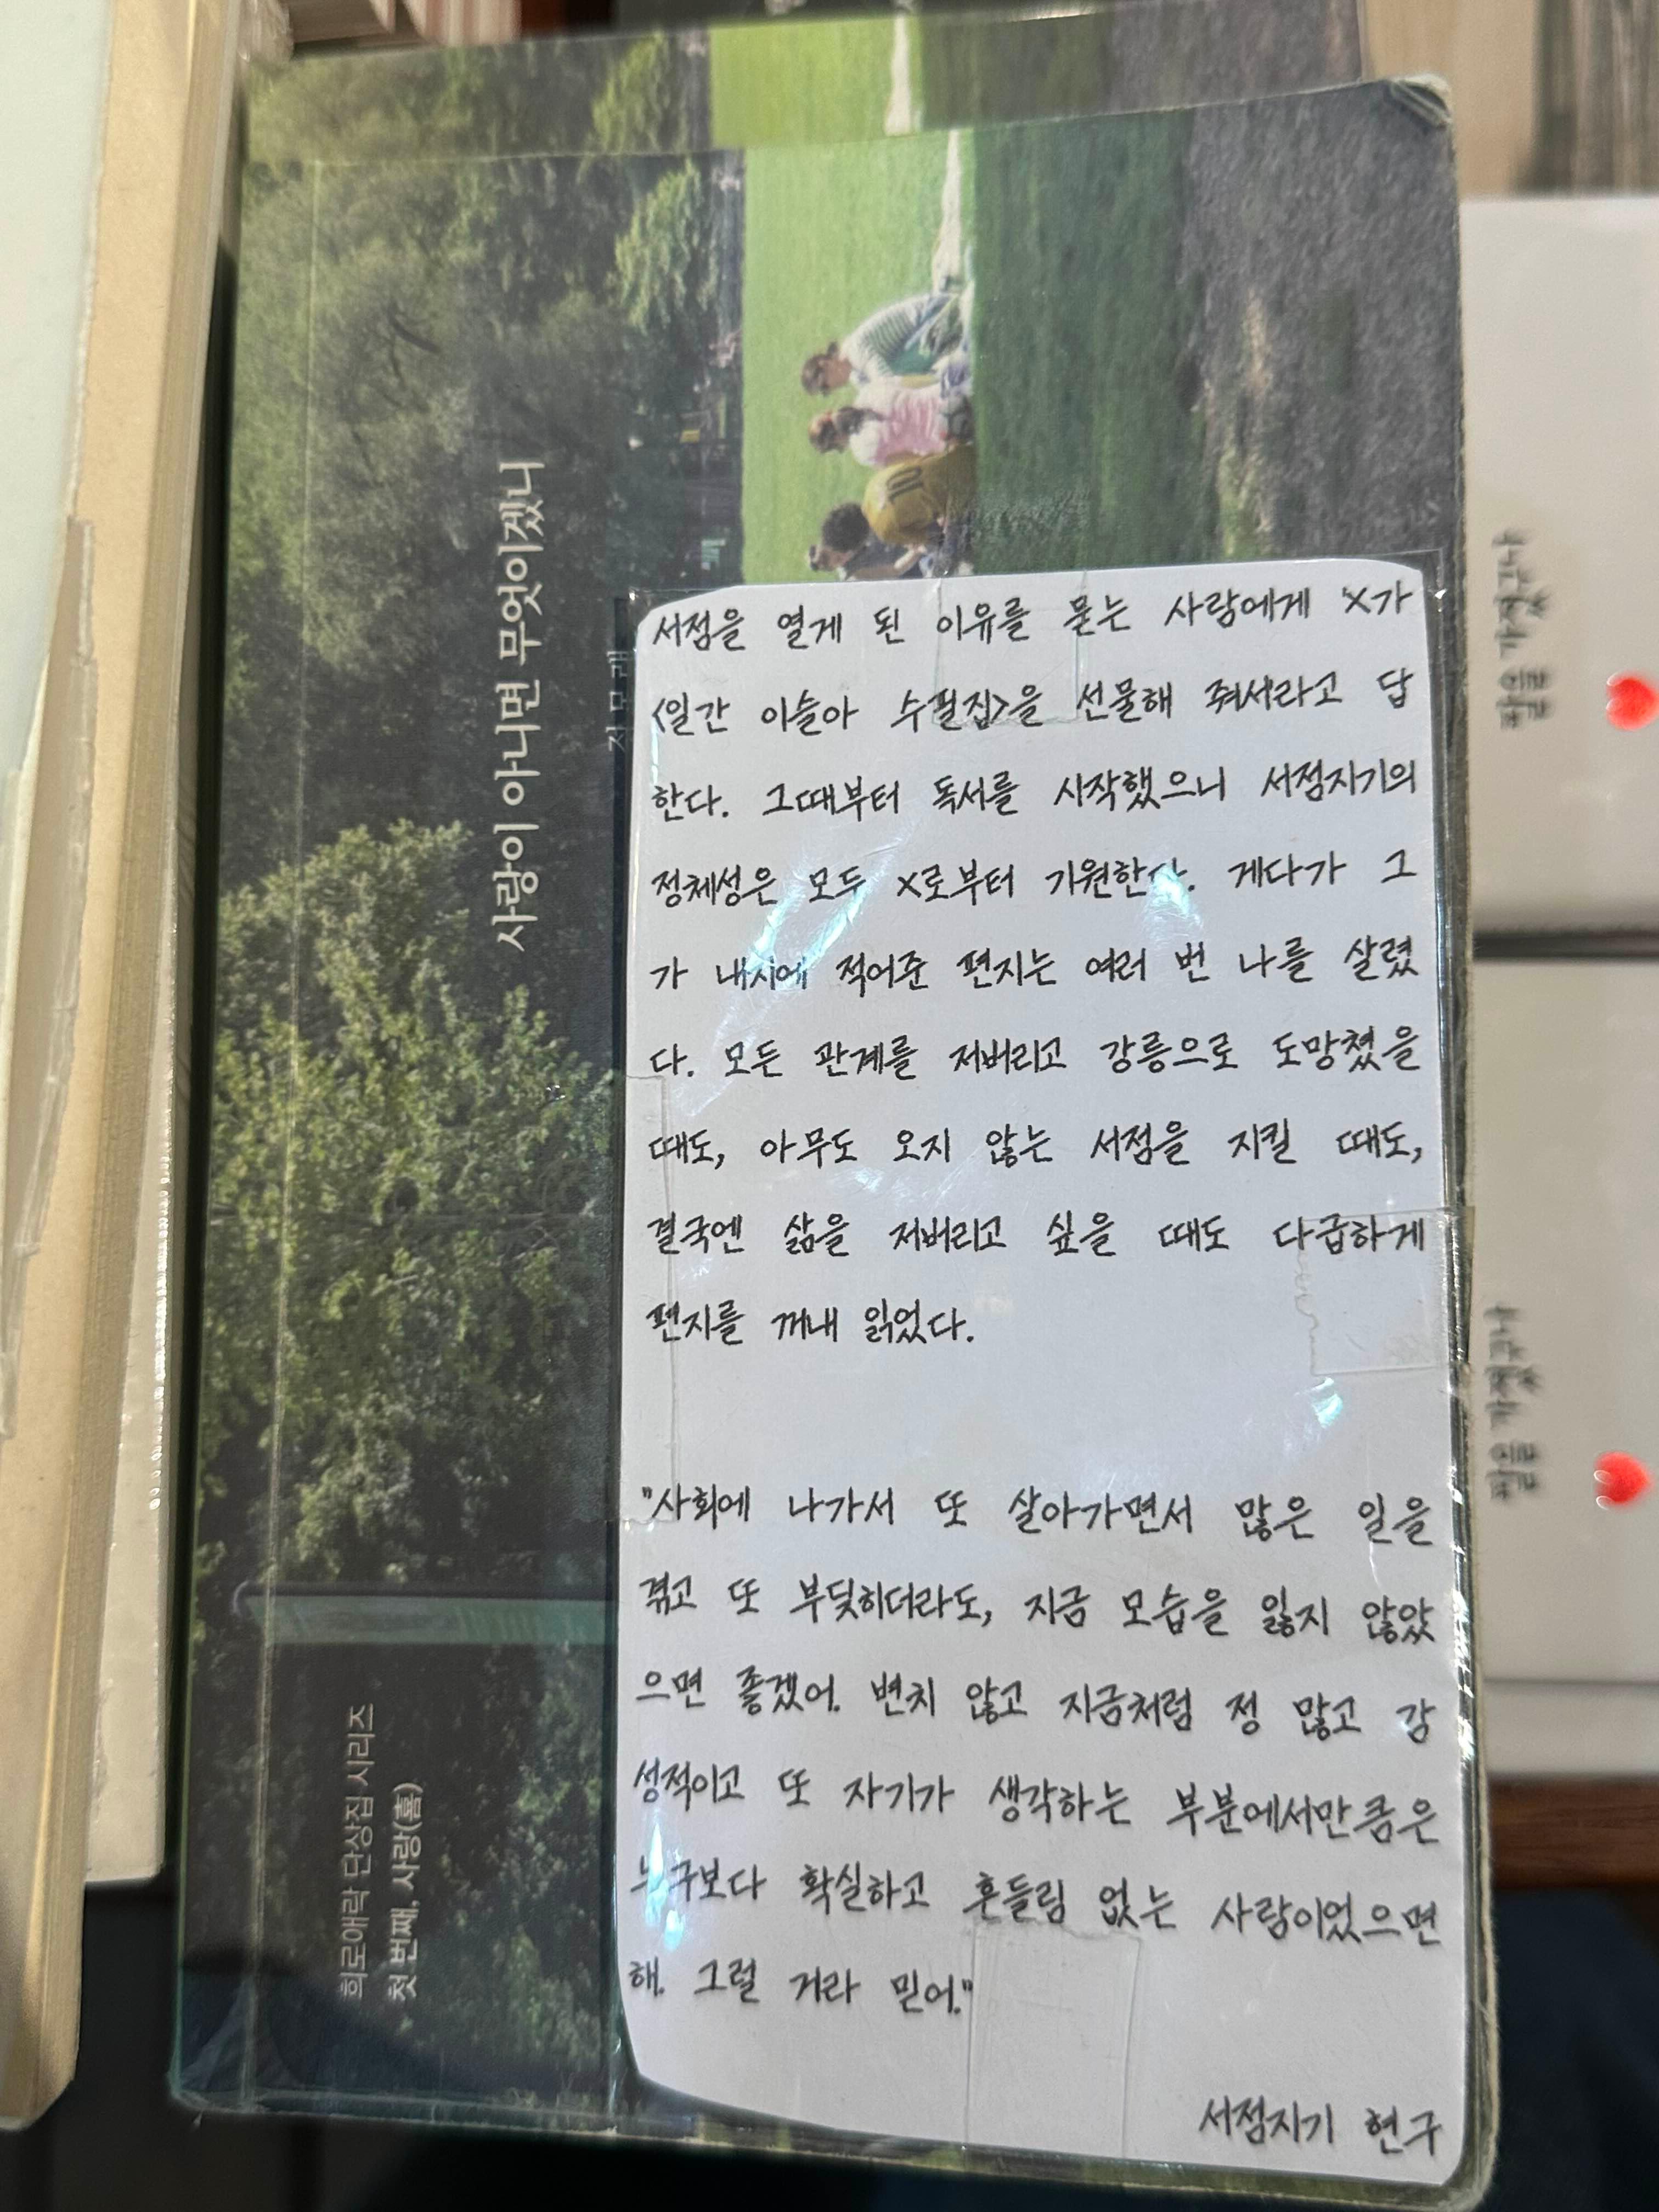 사랑이 아니면 무엇이겠니
희로애락 단상집 시리즈
첫 번째, 사랑(喜)
10
서점을 열게 된 이유를 묻는 사람에게 'X가
<일간 이슬아 수필집>을 선물해 줘서라고 답
한다. 그때부터 독서를 시작했으니 서점지기의
정체성은 모두 X로부터 기원한다. 게다가 그
가 내지에 적어준 편지는 여러 번 나를 살렸
다. 모든 관계를 저버리고 강릉으로 도망쳤을
때도, 아무도 오지 않는 서점을 지킬 때도,
결국엔 삶을 저버리고 싶을 때도 다급하게
편지를 꺼내 읽었다.
"사회에 나가서 또 살아가면서 많은 일을
겪고 또 부딪히더라도, 지금 모습을 잃지 않았
으면 좋겠어. 변치 않고 지금처럼 정 많고 감
성적이고 또 자기가 생각하는 부분에서만큼은
누구보다 확실하고 흔들림 없는 사람이었으면
해. 그럴 거라 믿어."
서점지기 현구